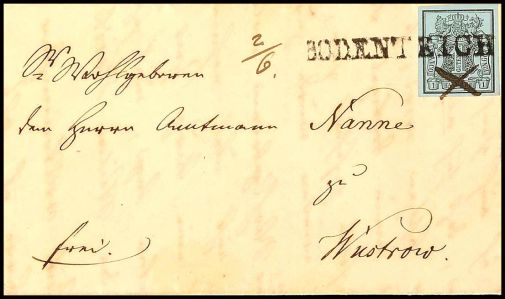 2/6.
BODENTEICH
Sr Wohlgeboren
dem Herrn Amtmann Nanne
zu
frei. Wustrow.